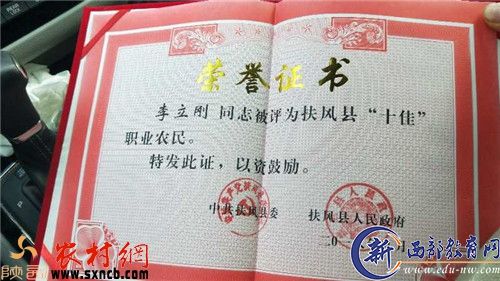 荣誉证书
李立刚 同志被评为扶风县“十佳”
职业农民。
特发此证，以资鼓励。
中共扶风县委 扶风县人民政府
二〇
月
农村網
www.sxncb.com
新西部教育网
www.edu-nw.com